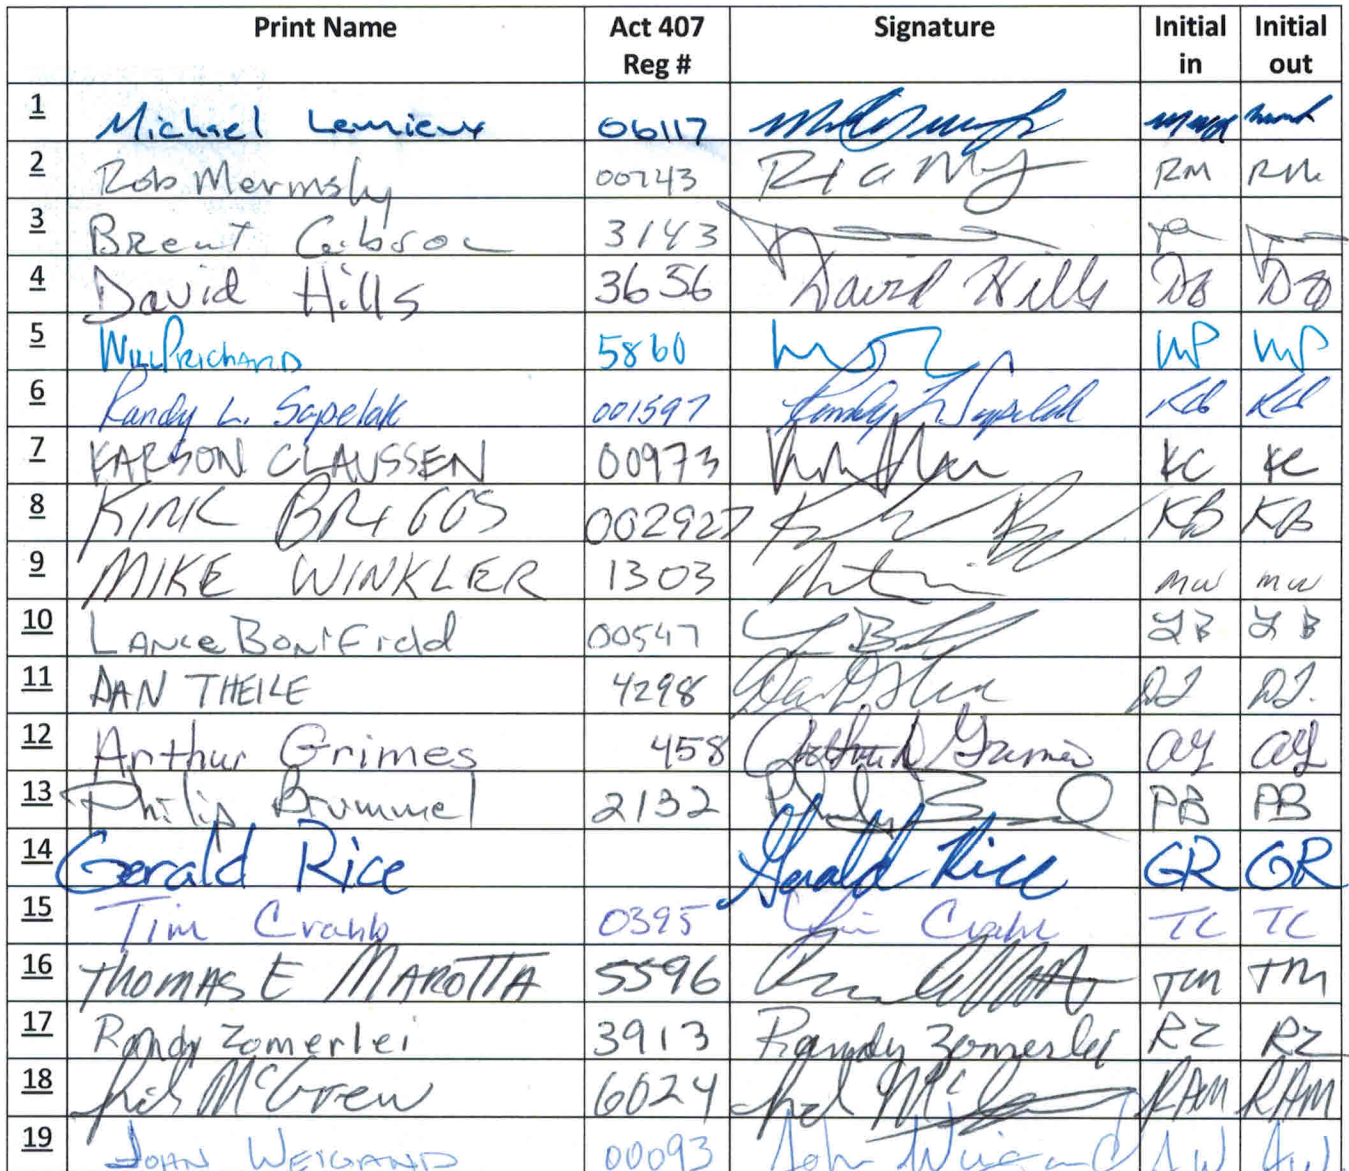 Print Name Act 407 Reg # Signature Initial in Initial out
1 Michael Lemieux 06117
2 Rob Mermsky 00743 RM RM
3 Brent Gibson 3143
4 David Hills 3656 David Hills
5 Will Prichard 5860 WP WP
6 Randy L. Sopelak 001597 Randy L Sopelak
7 KARSON CLAUSSEN 00973 KC KC
8 KIRK BRIGGS 002927 KB KB
9 MIKE WINKLER 1303 MW MW
10 LANCE BONIFIELD 00547 LB LB
11 DAN THEILE 4298 DT DT.
12 Arthur Grimes 458 Arthur Grimes AG AG
13 Philip Brummel 2132 PB PB
14 Gerald Rice Gerald Rice GR GR
15 Tim Crabb 0395 Tim Crabb TC TC
16 THOMAS E MAROTTA 5596 TM TM
17 Randy Zomerlei 3913 Randy Zomerlei RZ RZ
18 Rich McGrew 6024 RAM RAM
19 JOHN WEIGAND 00093 John Weigand JW JW